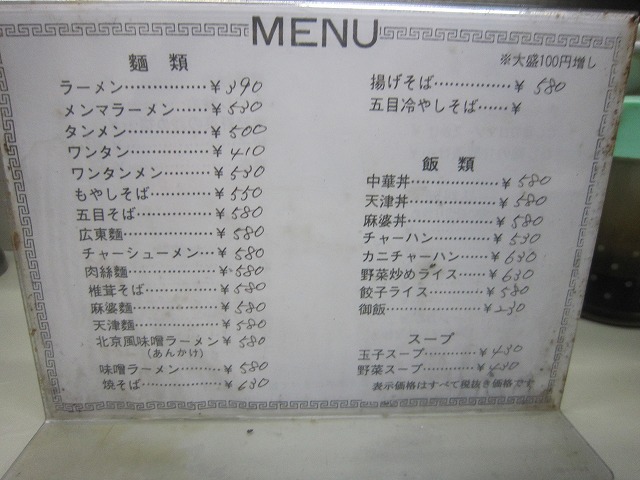 MENU
※大盛100円増し
麺類
ラーメン……………¥390
メンマラーメン……¥530
タンメン……………¥500
ワンタン……………¥410
ワンタンメン………¥530
もやしそば…………¥550
五目そば……………¥580
広東麺………………¥580
チャーシューメン…¥580
肉絲麺………………¥580
椎茸そば……………¥580
麻婆麺………………¥580
天津麺………………¥580
北京風味噌ラーメン¥580
(あんかけ)
味噌ラーメン………¥580
焼そば………………¥630
揚げそば……………¥580
五目冷やしそば……¥
飯類
中華丼………………¥580
天津丼………………¥580
麻婆丼………………¥580
チャーハン…………¥530
カニチャーハン……¥630
野菜炒めライス……¥630
餃子ライス…………¥580
御飯…………………¥230
スープ
玉子スープ…………¥430
野菜スープ…………¥430
表示価格はすべて税抜き価格です